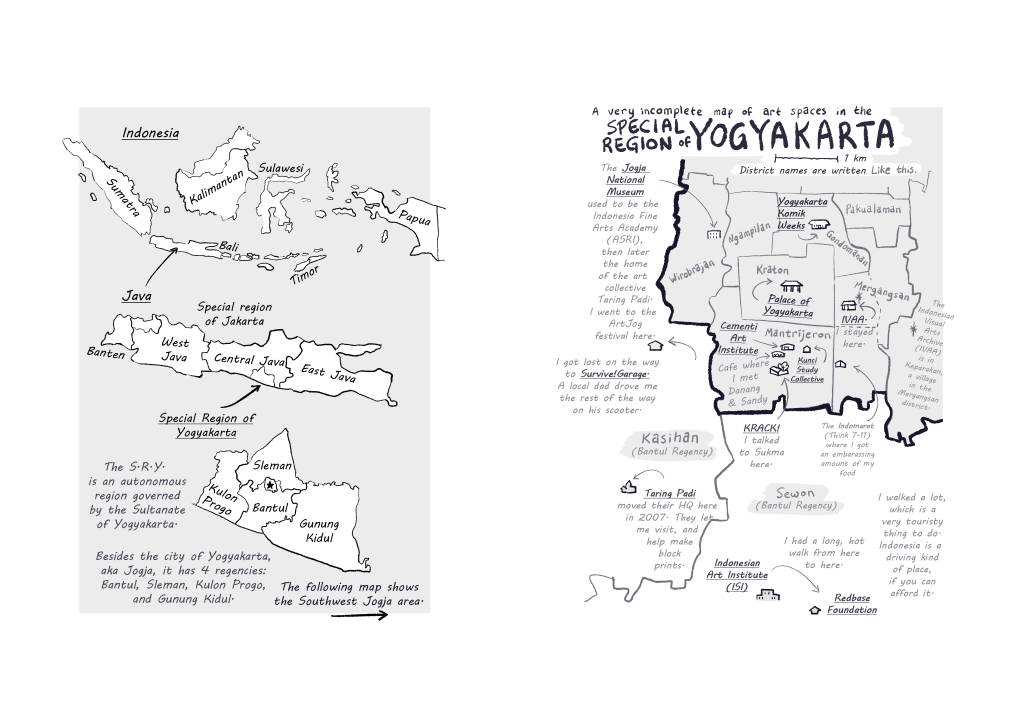 Indonesia
Sumatra
Kalimantan
Sulawesi
Papua
Bali
Timor
Java
Special region
of Jakarta
Banten
West
Java
Central Java
East Java
Special Region of
Yogyakarta
Sleman
Kulon
Progo
Bantul
Gunung
Kidul
The S.R.Y.
is an autonomous
region governed
by the Sultanate
of Yogyakarta.
Besides the city of Yogyakarta,
aka Jogja, it has 4 regencies:
Bantul, Sleman, Kulon Progo,
and Gunung Kidul.
The following map shows
the Southwest Jogja area.
A very incomplete map of art spaces in the
SPECIAL
REGION of YOGYAKARTA
1 km
District names are written Like this.
The Jogja
National
Museum
used to be the
Indonesia Fine
Arts Academy
(ASRI),
then later
the home
of the art
collective
Taring Padi.
I went to the
ArtJog
festival here.
I got lost on the way
to Survive!Garage.
A local dad drove me
the rest of the way
on his scooter.
Wirobrajan
Ngampilan
Yogyakarta
Komik
Weeks
Pakualaman
Gondomanan
Kraton
Palace of
Yogyakarta
Mergangsan
IVAA.
I stayed
here.
The
Indonesian
Visual
Arts
Archive
(IVAA)
is in
Keparakan,
a village
in the
Mergangsan
district.
Cementi
Art
Institute
Mantrijeron
Kunci
Study
Collective
Cafe where
I met
Danang
& Sandy
KRACK!
I talked
to Sukma
here.
The Indomaret
(Think 7-11)
where I got
an embarassing
amount of my
food
Kasihan
(Bantul Regency)
Taring Padi
moved their HQ here
in 2007. They let
me visit, and
help make
block
prints.
Sewon
(Bantul Regency)
I had a long, hot
walk from here
to here.
Indonesian
Art Institute
(ISI)
Redbase
Foundation
I walked a lot,
which is a
very touristy
thing to do.
Indonesia is a
driving kind
of place,
if you can
afford it.